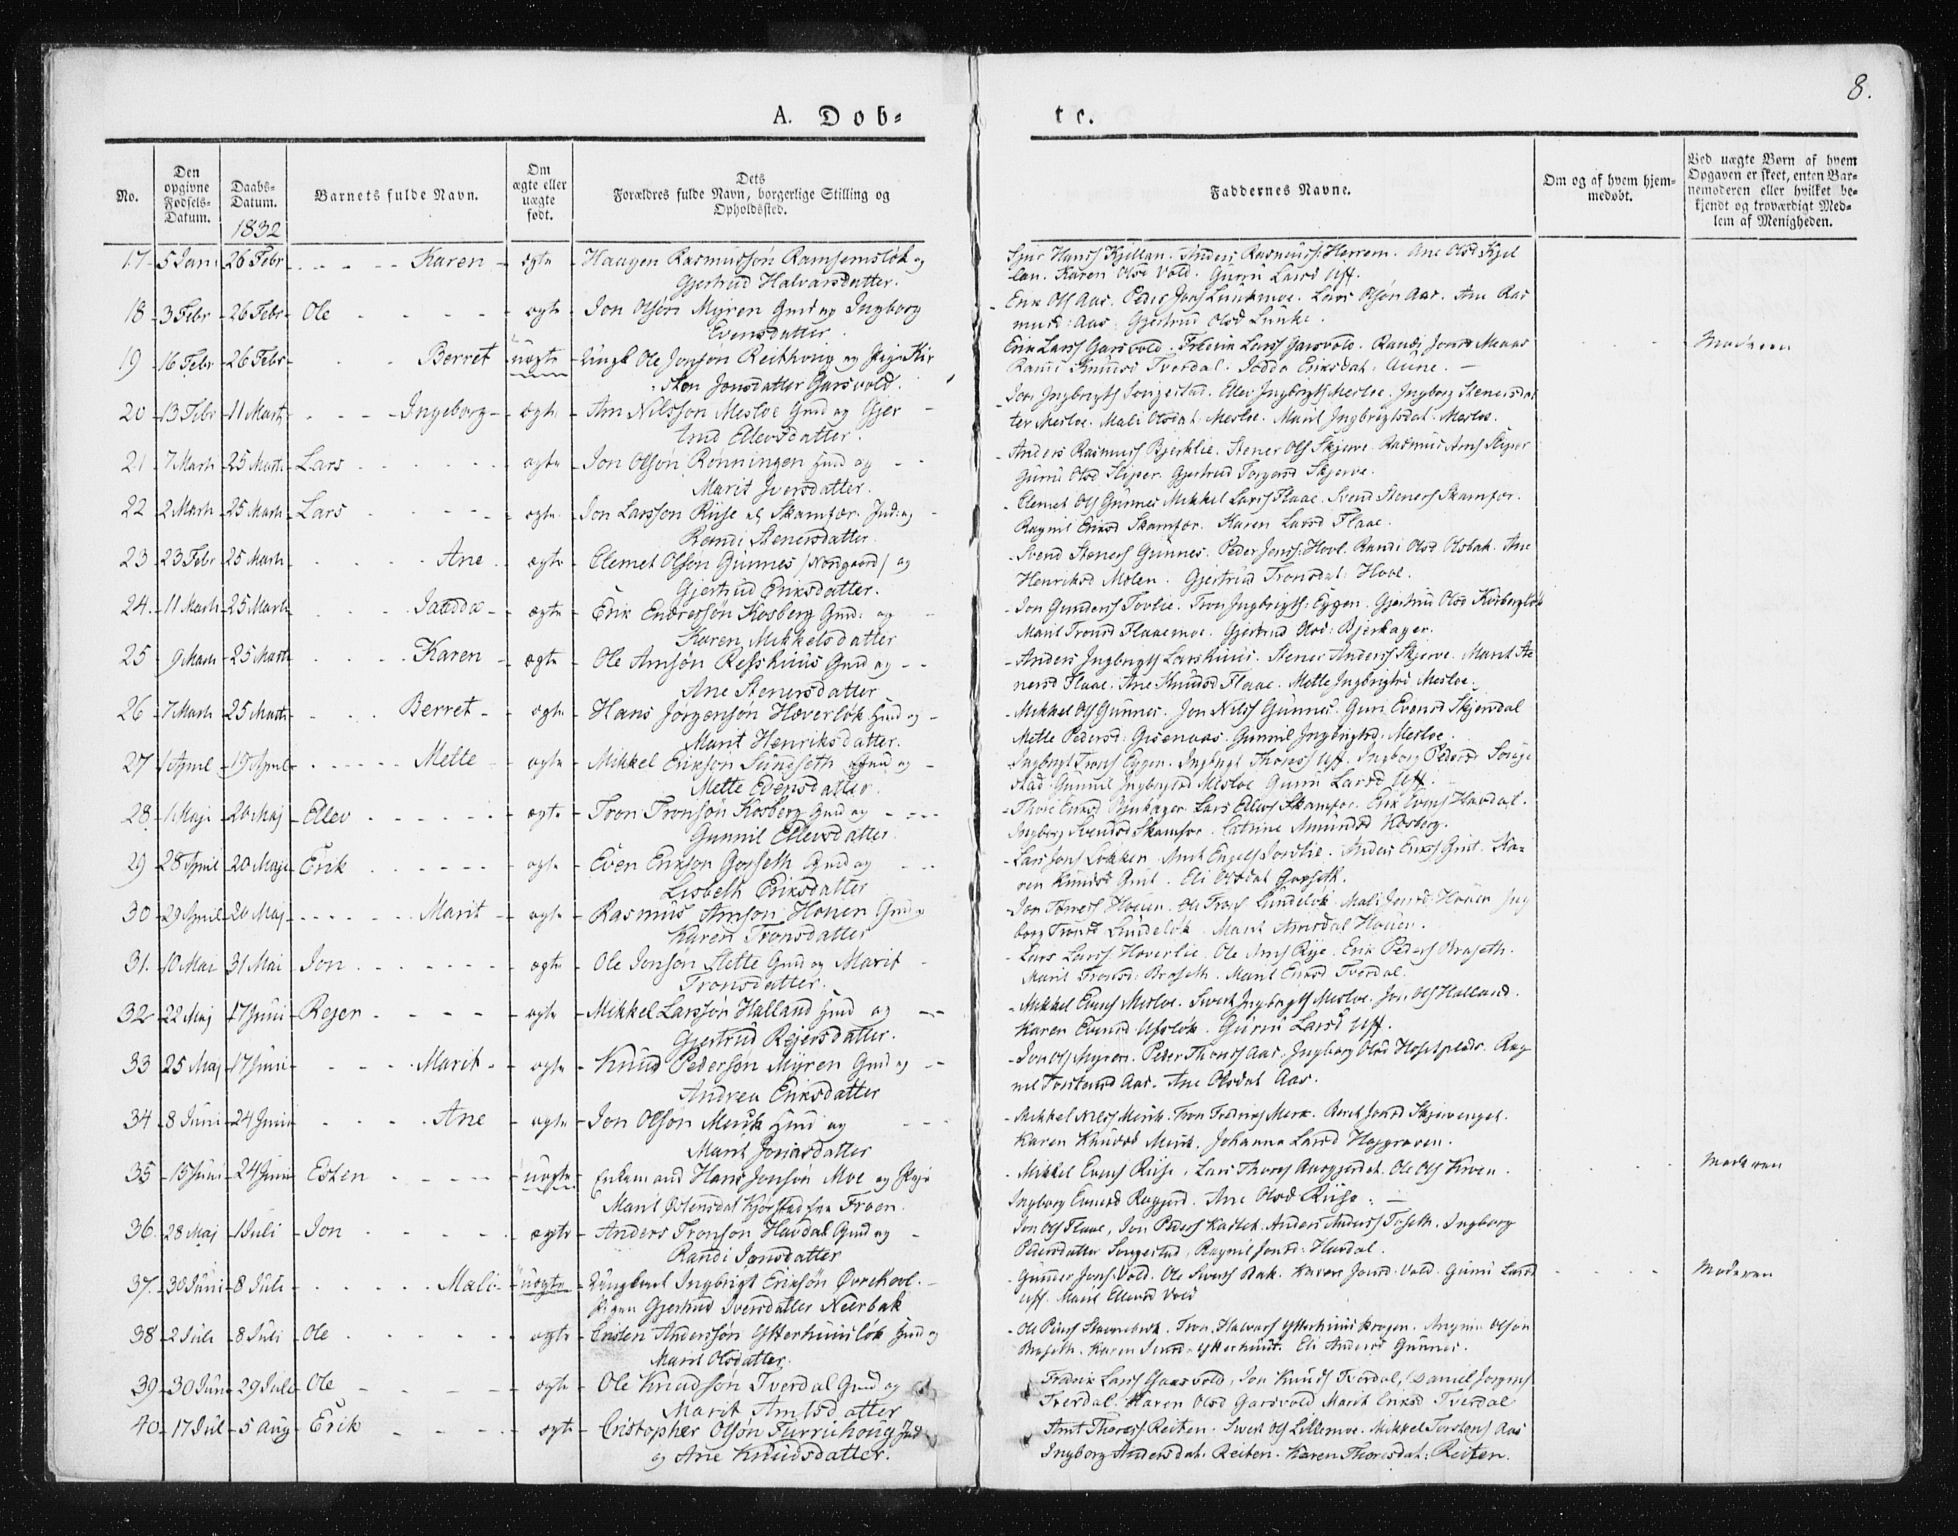 8.
A. Døb-
te.
No.
Den opgivne Fødsels-Datum.
Daabs-Datum.
1832
Barnets fulde Navn.
Om ægte eller uægte født.
Dets Forældres fulde Navn, borgerlige Stilling og Opholdssted.
Faddernes Navne.
Om og af hvem hjem-medøbt.
Ved uægte Børn af hvem Opgaven er skeet, enten Bar-nemoderen eller hvilket be-kjendt og troværdigt Med-lem af Menigheden.
17 5 Jan 26 Febr Karen ægte Haagen Rasmussøn Ramsemsløk og
Gjertrud Halvarsdatter.
Anders Rasmuss: Herrem. Ane Olsd Kjel
lan. Karen Olsd Vold. Gurru Larsd Uff.
18 3 Febr 26 Febr Ole ægte Jon Olsøn Myren Gmd og Ingborg
Evensdatter.
Erik Ols Aas. Peder Jons Lundemoe. Lars Olsøn Aas. Ane Ras
musd: Aas. Gjertrud Olsd Lunke.
19 16 Febr 26 Febr Berret uægte Ungk Ole Jonson Reithvrig og Pige Kir
sten Jonsdatter Garsvold.
Erik Larss Garsvold. Fredrik Larss Garsvold. Randi Jonsd Moaas
Randi Knudsd Tverdal. Jodda Eriksdat. Aune.
Moderen
20 13 Febr 11 Marti Ingeborg ægte Arn Nilsson Mesloe Gmd og Gjer
trud Ellevsdatter.
Jon Ingbrigts Songestad. Ellev Ingbrigts Mesloe. Ingborg Stenersdat
ter Mesloe. Mali Olsdat. Mesloe. Marit Ingbrigtsdat. Mesloe.
21 7 Marti 25 Marti Lars ægte Jon Olsøn Rønningen Hmd og
Marit Iversdatter.
Anders Rasmuss Bjerklie. Stener Ols Skjerve. Rasmus Arns Skiper
Gurru Olsd Skiper. Gjertrud Torgersd Skjerve.
22 2 Marti 25 Marti Lars ægte Jon Larsson Ruse Skamfær Ind: og
Randi Stenersdatter.
Clemet Ols Gunnes Mikkel Larss Flaae. Svend Steners Skamfer.
Ragnil Eriksd Skamfer. Karen Larsd Flaae.
23 23 Febr 25 Marti Ane ægte Clemet Olson Gunnes /Nordgaard/ og
Gjertrud Eriksdatter.
Svend Steners Gunnes. Peder Jons: Hovl. Randi Olsd Olsbak. Ane
Henriksd Molen. Gjertrud Tronsdat: Hove.
24. 11 Marti 25 Marti Jaadda ægte Erik Endressøn Kosberg Gmd: og
Karen Mikkelsdatter
Jon Gunders Tovlie. Tron Ingbrigts: Eggen. Gjertrud Olsd Kosbergløk
Marit Tronsd Flaaemoe. Gjertrud Olsd: Bjerkager.
25 9 Marti 25 Marti Karen ægte Ole Arnsøn Resshuus Gmd og
Ane Stenersdatter
Anders Ingbrigts Larshuus. Stener Anderss Skjerve. Marit Ste
nersd Flaae. Ane Knudsd Flaae. Mette Ingbrigtsd Mesloe.
26 7 Marti 25 Marti Berret ægte Hans Jørgensøn Hæverløk Hmd og
Marit Henriksdatter.
Mikkel Ols Gunnes. Jon Nilss Gunnes. Guri Evensd Skjersdal
Mette Pedersd: Gisenaas. Gunnil Ingbrigtsd. Mesloe.
27 1 April 19 April Mette ægte Mikkel Erikson Sundseth Gmd og
Mette Evensdatter.
Ingbrigt Trons Eggen. Ingbrigt Thores Uff. Ingborg Pedersd Songe
stad. Gunnil Ingbrigtsd Mesloe Gurru Larsd Uff.
28. 1 Maji 20 Maj Ellev ægte Tron Tronsøn Kosberg Gmd og
Gunnil Ellevsdatter.
Thore Eriks Bjerkager. Lars Ellevs Skamfer. Erik Evens Havdal.
Ingborg Svendsd Skamfer. Catrine Amundsd Kosberg.
29 28 April 20 Maji Erik ægte Even Erikson Gorseth Gmd og
Lisbeth Eriksdatter
Lars Jons Løkken. Arnt Engels Jorslie. Anders Eriks Grut. Ka-
ren Knudsd Grut. Eli Olsdat Gorseth.
30 29 April 20 Maj Marit ægte Rasmus Arnson Houen Gmd og
Karen Tronsdatter
Jon Torress Houen. Ole Trons Lundeløk. Mali Jonsd: Houen Ing
borg Tronsd Lundeløk. Marit Arnsdat Houen.
31. 10 Mai 31 Mai Jon ægte Ole Jonson Slette Gmd og Marit
Tronsdatter.
Lars Larss Hoverlie. Ole Arns Rye. Erik Peders Broseth.
Marit Tronsd: Broseth. Marit Eriksd Tverdal.
32 22 Maj 17 Juni Rejer ægte Mikkel Larssøn Halland Hmd og
Gjertrud Rejersdatter.
Mikkel Evens Mesloe. Sivert Ingbrigts Mesloe. Jon Ols Halland.
Karen Evensd Ufsløk. Gurru Larsd Uff.
33 25 Maj 17 Juni Marit ægte Knud Pedersøn Myren Gmd og
Andrea Eriksdatter
Jon Ols Myren. Peder Thores Aas. Ingborg Olsd Hosetplads. Rag
nil Torstensd Aas. Ane Olsdat Aas.
34 8 Juni 24 Juni Ane ægte Jon Olson Merk Hmd og
Marit Jonasdatter
Mikkel Nilss Merk. Tron Fredriks Merk. Berit Jonsd Skjevengel.
Karen Knudsd Merk. Johanna Larsd Hoggraven.
35 15 Juni 24 Juni Esten uægte Enkemand Hans Jonsøn Moe og Pige
Marit Østensdat Kjorstad fra Froen.
Mikkel Evens Ruse. Lars Thores Aasgjerdet. Ole Ols Kroen.
Ingborg Evensd Rogjerd. Ane Olsd Ruse.
Moderen
36. 28 Maj 1 Juli Jon ægte Anders Tronson Havdal Gmd og
Randi Jonsdatter
Jon Ols Flaae, Jon Peders Kaslet. Anders Anderss Foseth. Ingborg
Pedersdatter Songestad, Ragnil Jonsd. Havdal.
37. 30 Juni 8 Juli Mali uægte Ungkarl Ingbrigt Eriksøn Øvrekovl.
Pigen Gjertrud Iversdatter Neerbak
Gunner Jons: Vold. Ole Siverts Bak. Karen Jonsd. Vold. Gurru Larsd
Uff. Marit Ellevsd Vold
Moderen
38 2 Juli 8 Juli Ole ægte Cristen Anderssøn Ytterhuusløk Hmd og
Marit Olsdatter.
Tron Halvars Ytterhuus Krogen.
Broseth. Karen Jensd. Ytterhuus. Eli Andersd Gunnes.
39 30 Juni 29 Juli Ole ægte Ole Knudsøn Tverdal Gmd og
Marit Arntsdatter
Fredrik Larss Gaarsvold, Jon Knuds Tverdal, Daniel Jørgens
Tverdal. Karen Olsd Garsvold Marit Eriksd Tverdal
40 17 Jul 5 Aug Erik ægte Cristopher Olsøn Furruhoug Ind
og Ane Knudsdatter.
Arnt Thores Reiten. Sivert Ols Lillemoe. Mikkel Torstens Aas
Ingborg Andersdat. Reiten. Karen Thoresdat: Reiten.